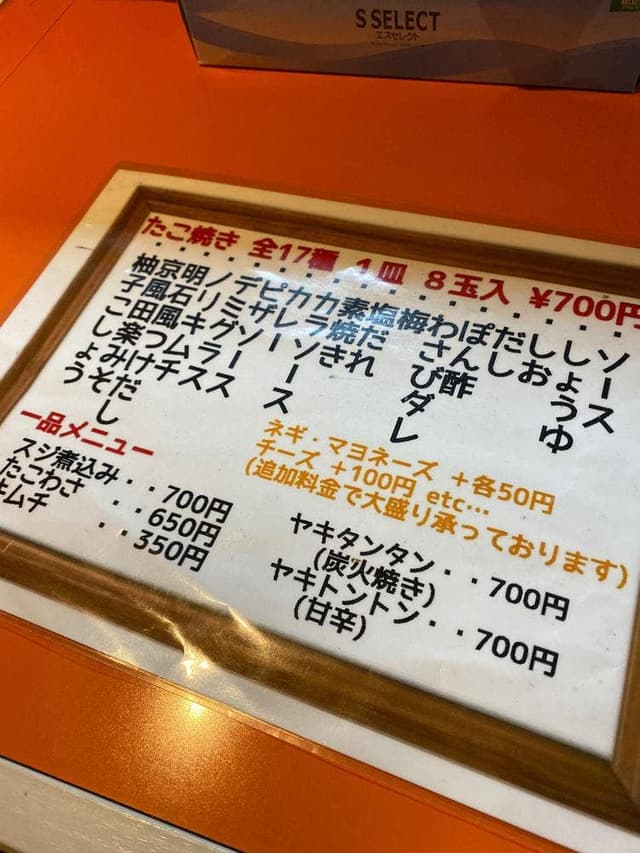 S SELECT
エスセレクト
たこ焼き 全17種 1皿 8玉入 ¥700円
ソース
しょうゆ
しお
だし
ぽん酢
わさびダレ
梅
塩だれ
素焼き
カラ
カレーソース
ピザソース
デミグラス
ノリキムチ
明石風つけだし
京風田楽みそ
柚子こしょう
ネギ・マヨネーズ +各50円
チーズ +100円 etc…
(追加料金で大盛り承っております)
一品メニュー
スジ煮込み・・700円
たこわさ ・・650円
キムチ ・・350円
ヤキタンタン・・700円
(炭火焼き)
ヤキトントン・・700円
(甘辛)